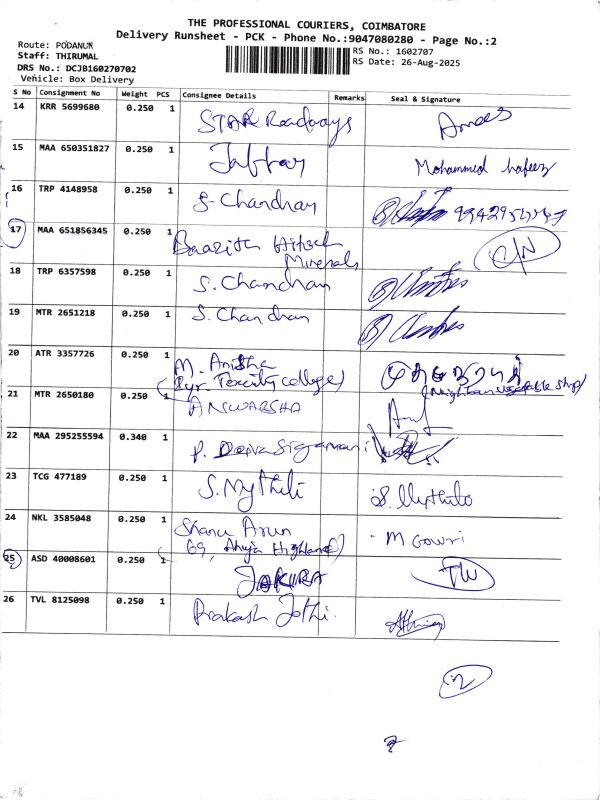 THE PROFESSIONAL COURIERS, COIMBATORE
Delivery Runsheet - PCK - Phone No.:9047080280 - Page No.:2
Route: PODANUR
Staff: THIRUMAL
DRS No.: DCJB160270702
Vehicle: Box Delivery
RS No.: 1602707
RS Date: 26-Aug-2025
S No Consignment No Weight PCS Consignee Details Remarks Seal & Signature
14 KRR 5699680 0.250 1 STAR Roadways
15 MAA 650351827 0.250 1 Jabbar Mohammed hafeez
16 TRP 4148958 0.250 1 S. Chandran
17 MAA 651856345 0.250 1 Hitech Minerals C/N
18 TRP 6357598 0.250 1 S. Chandran
19 MTR 2651218 0.250 1 S. Chandran
20 ATR 3357726 0.250 1 M. Anitha
College)
21 MTR 2650180 0.250 1 ANWARSHA
22 MAA 295255594 0.340 1 P. Deiva Sigamani
23 TCG 477189 0.250 1 S. Mythili S. Mythili
24 NKL 3585048 0.250 1 Shanu Arun M Gowri
69, Ahuja Highland)
25 ASD 40008601 0.250 1 JAKIRA TW
26 TVL 8125098 0.250 1 Prakash Jothi.
2